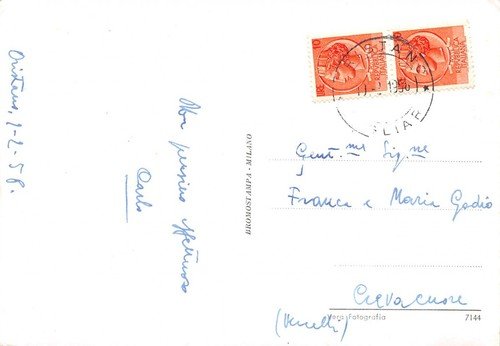 Oristano, 1-2-58.
Un pensiero affettuoso
Carlo
BROMOSTAMPA - MILANO
10
REPUBBLICA
ITALIANA
1958
Gent.me Sig.ne
Franca e Maria Gadio
Crevacuore
(Vercelli)
Vera fotografia
7144